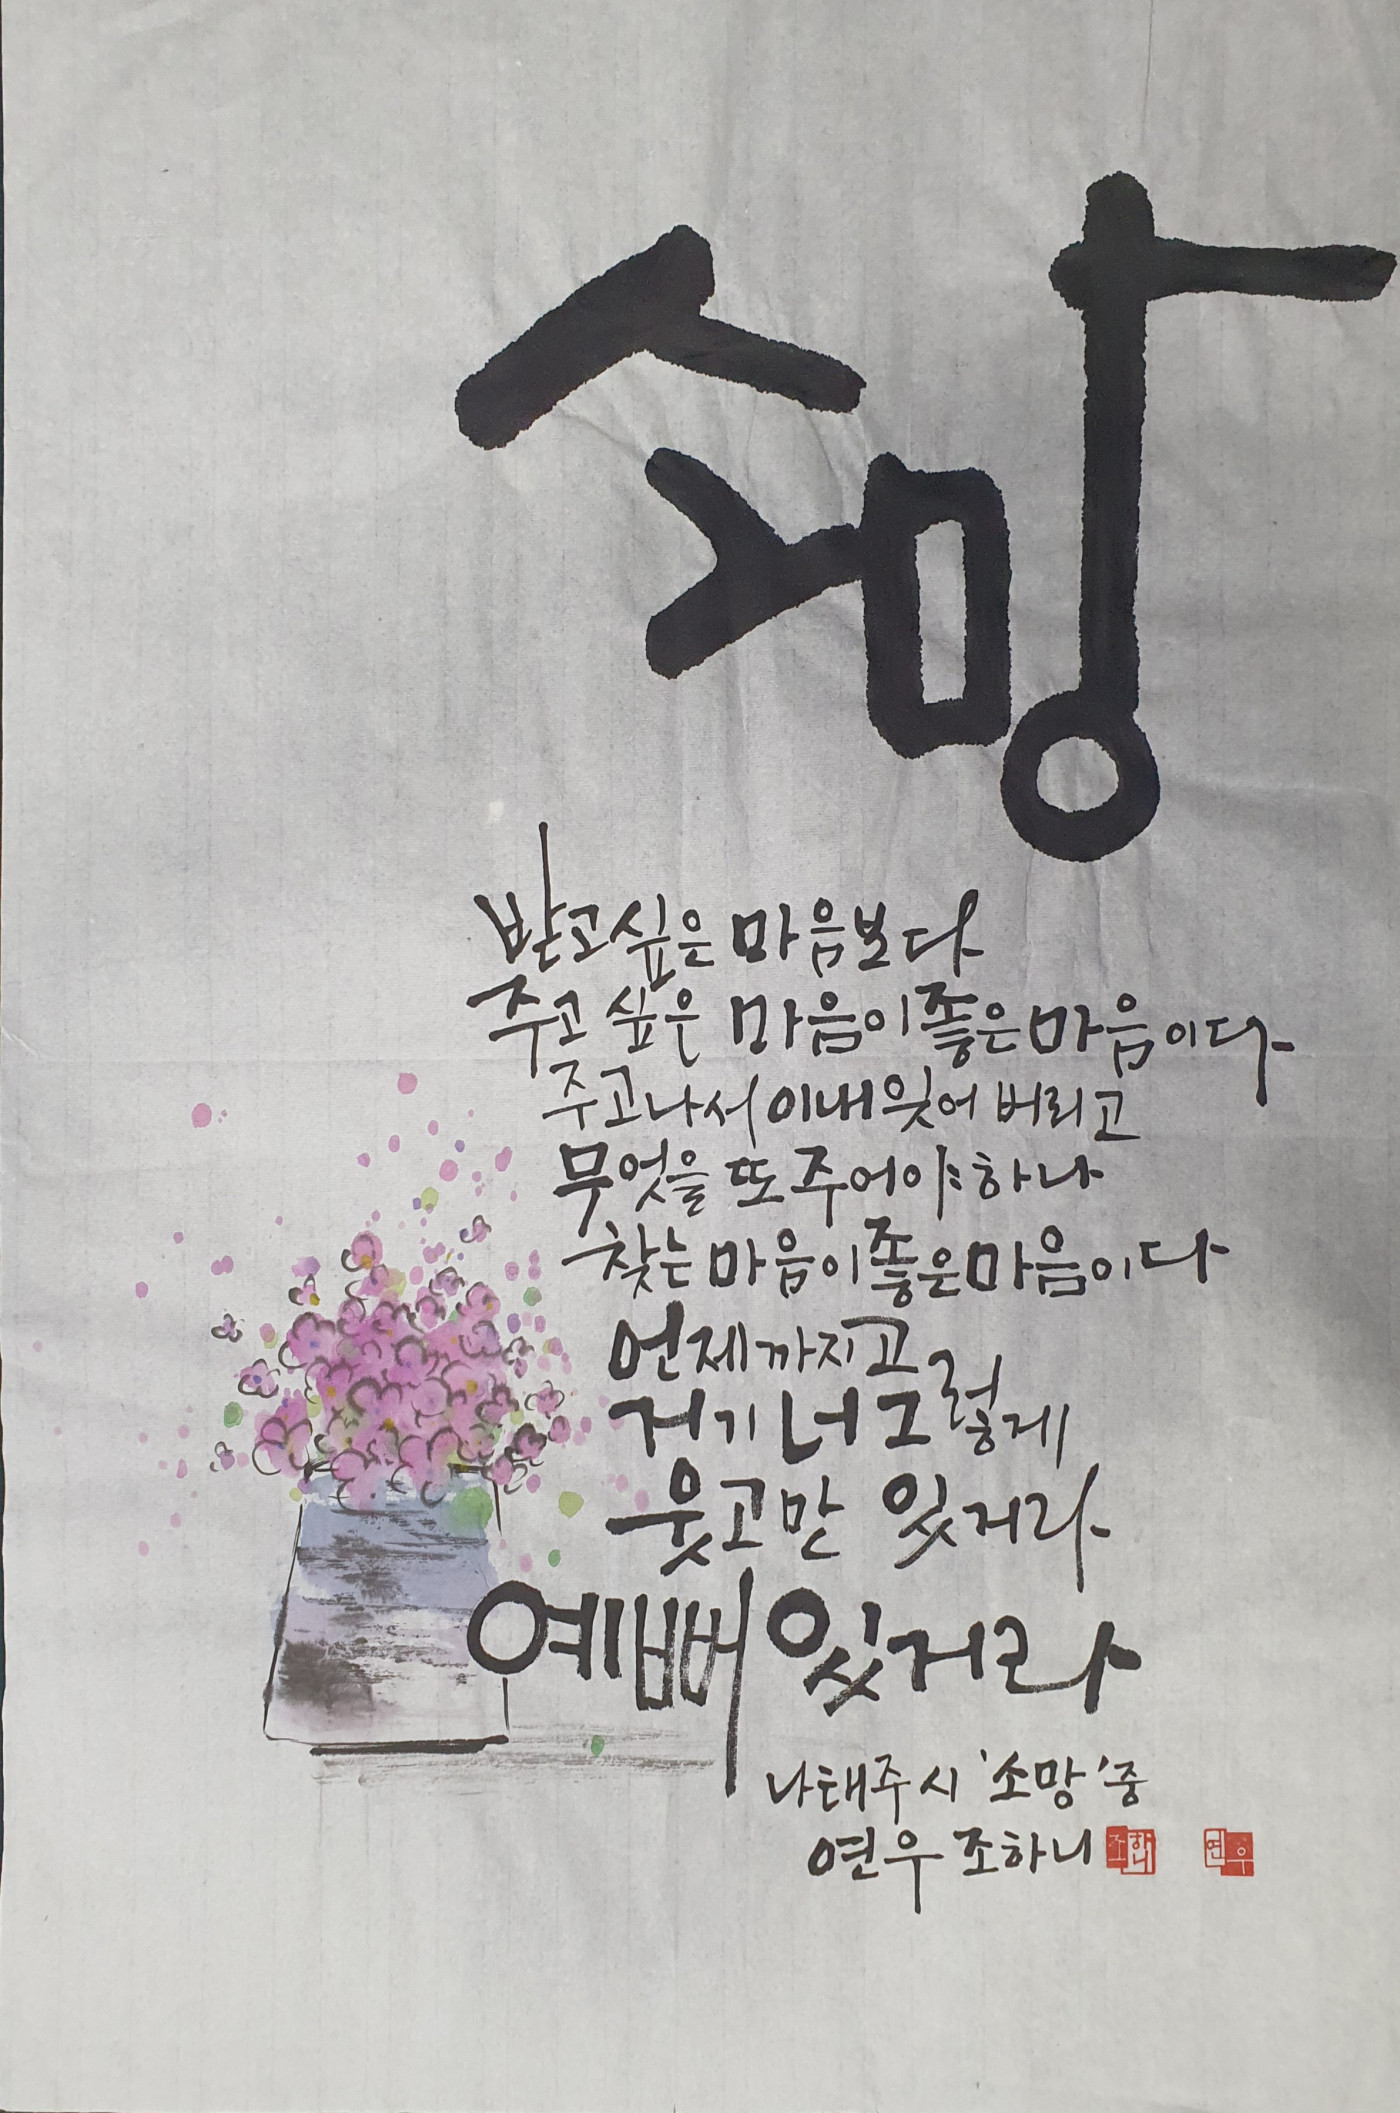 소망
받고 싶은 마음보다
주고 싶은 마음이 좋은 마음이다
주고나서 이내 잊어 버리고
무엇을 또 주어야 하나
찾는 마음이 좋은 마음이다
언제까지고
거기 너 그렇게
웃고만 있거라
예뻐 있거라
나태주 시 '소망' 중
연우 조하니 조하니 연우